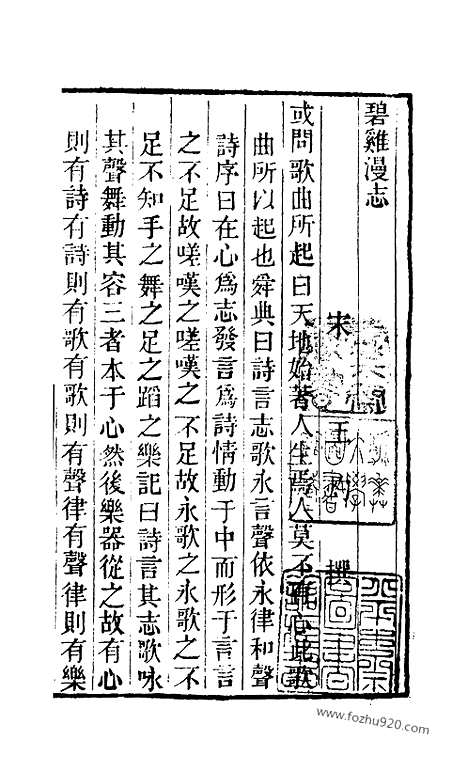 碧雞漫志
宋 王 撰
或問歌曲所起曰天地始著人生焉人莫不有心此歌
曲所以起也舜典曰詩言志歌永言聲依永律和聲
詩序曰在心爲志發言爲詩情動于中而形于言言
之不足故嗟嘆之嗟嘆之不足故永歌之永歌之不
足不知手之舞之足之蹈之樂記曰詩言其志歌咏
其聲舞動其容三者本于心然後樂器從之故有心
則有詩有詩則有歌有歌則有聲律有聲律則有樂
www.fozhu920.com